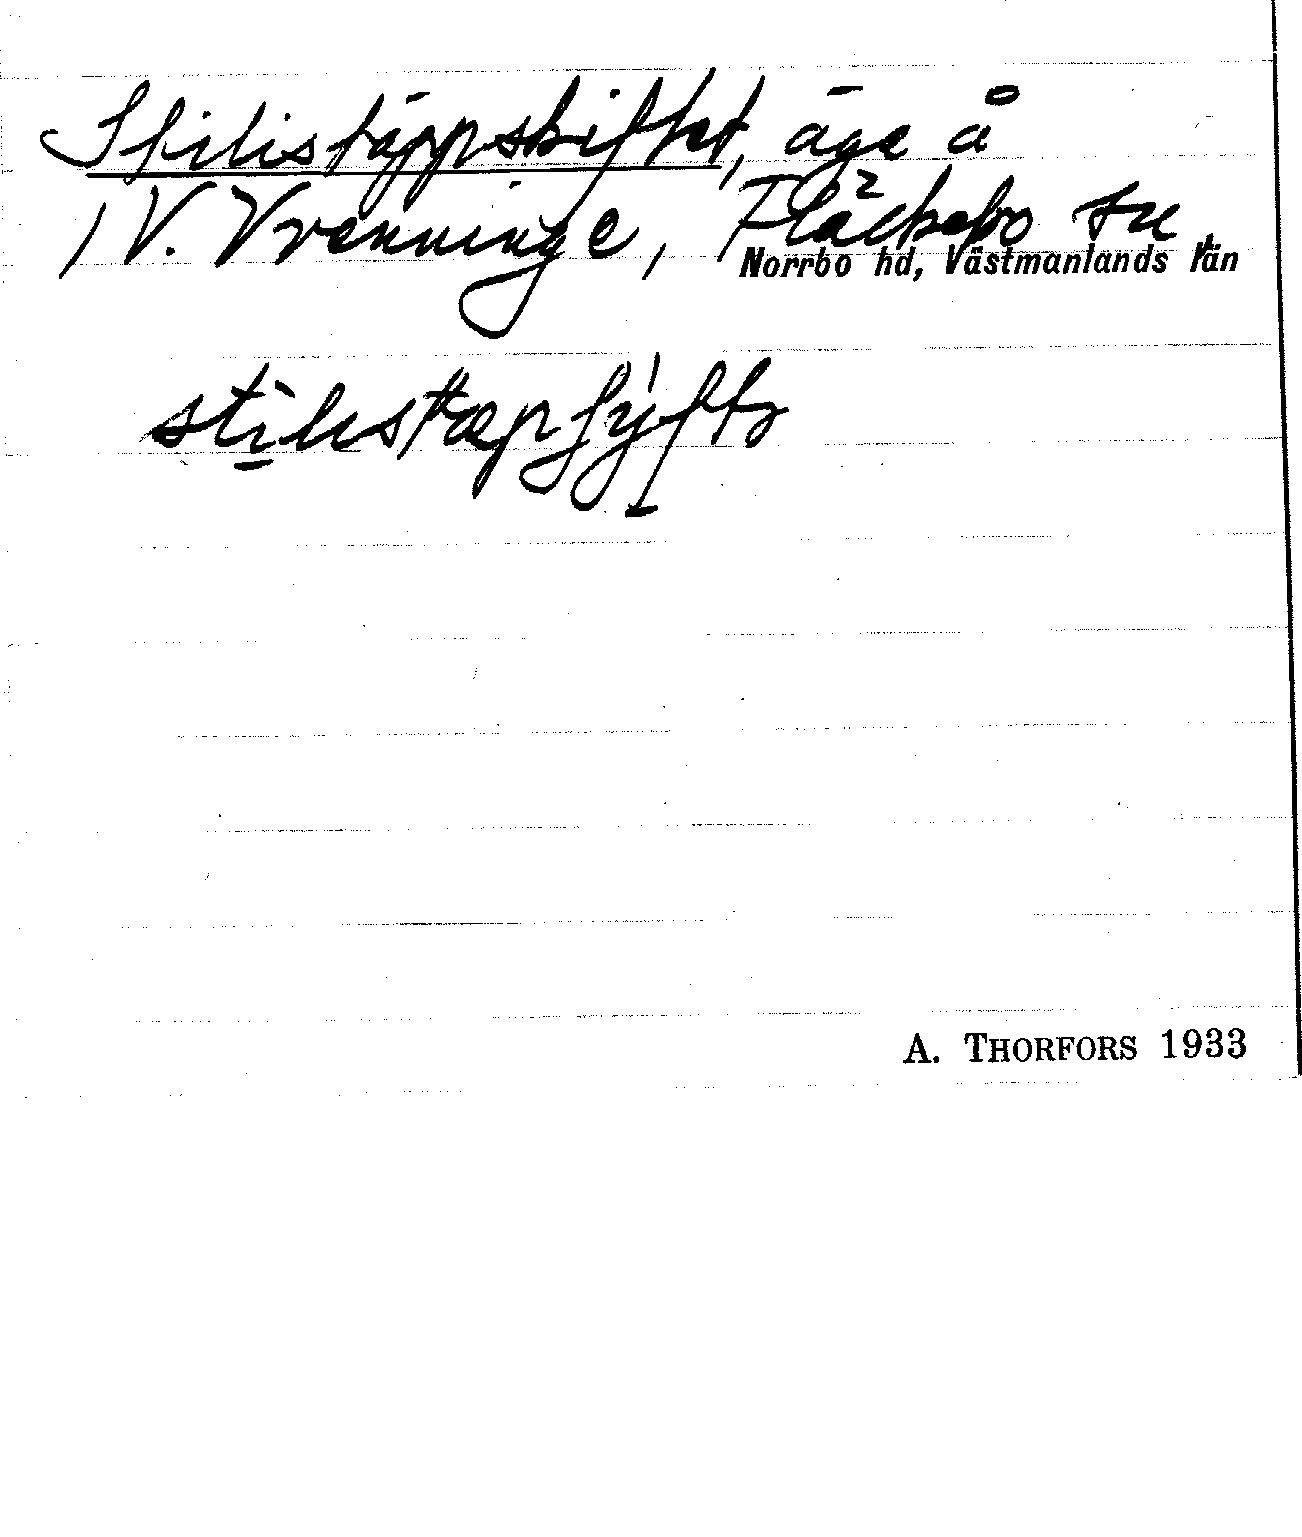 Stilistäppskiftet, äga å
/ V. Vrenninge, Fläckebo sn,
Norrbo hd, Västmanlands län
A. THORFORS 1933